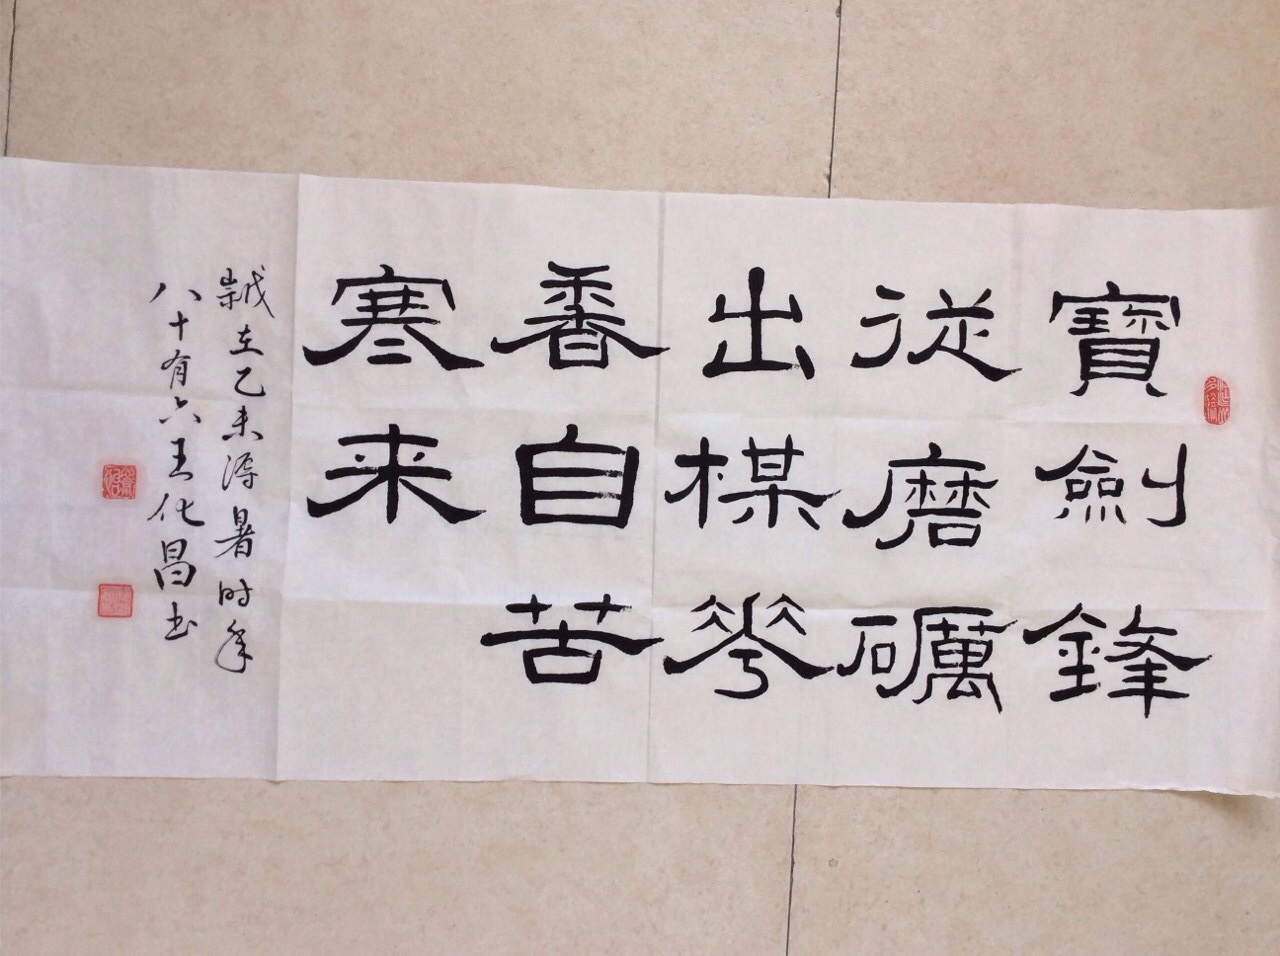 寶劍鋒
従磨礪
出楳花
香自苦
寒来
歲在乙未溽暑时年
八十有六王化昌书